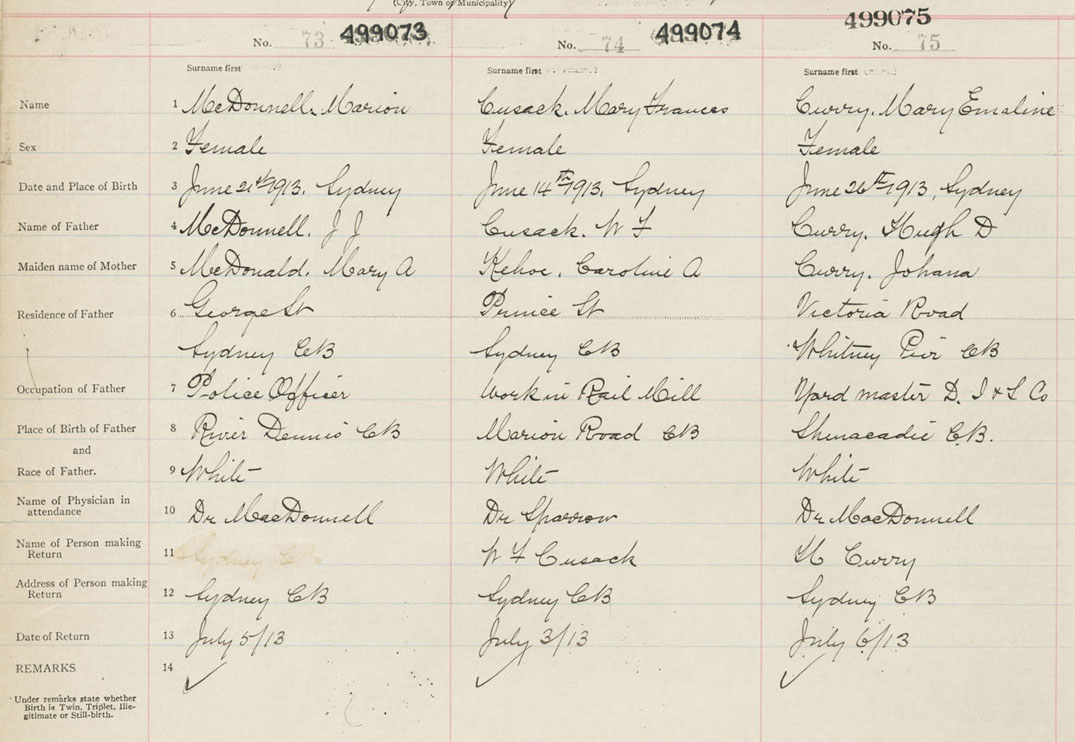 (City, Town or Municipality)
No. 73 499073 No. 74 499074 No. 75 499075
Surname first Surname first Surname first
Name 1 McDonnell, Marion Cusack. Mary Frances Curry. Mary Emaline
Sex 2 Female Female Female
Date and Place of Birth 3 June 21st 1913. Sydney June 14th 1913. Sydney June 26th 1913, Sydney
Name of Father 4 McDonnell. J J Cusack. W F Curry. Hugh D
Maiden name of Mother 5 McDonald. Mary A Kehoe. Caroline A Curry. Johana
Residence of Father 6 George St Prince St Victoria Road
Sydney CB Sydney CB Whitney Pier CB
Occupation of Father 7 Police Officer Work in Rail Mill Yard master D. I & S Co
Place of Birth of Father 8 River Dennis CB Marion Road CB Shenacadie C.B.
and
Race of Father. 9 White White White
Name of Physician in
attendance 10 Dr MacDonnell Dr Sparrow Dr MacDonnell
Name of Person making
Return 11 Sydney CB W F Cusack H Curry
Address of Person making
Return 12 Sydney CB Sydney CB Sydney CB
Date of Return 13 July 5/13 July 3/13 July 6/13
REMARKS 14 ✓ ✓ ✓
Under remarks state whether
Birth is Twin, Triplet, Ille-
gitimate or Still-birth.